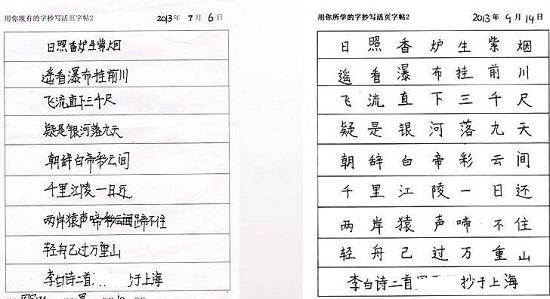 用你现有的字抄写活页字帖2 2013年 7月 6日
日照香炉生紫烟
遥看瀑布挂前川
飞流直下三千尺
疑是银河落九天
朝辞白帝彩云间
千里江陵一日还
两岸猿声帝彩云间蹄不住
轻舟已过万重山
李白诗二首 抄于上海
用你所学的字抄写活页字帖2 2013年 9月 19日
日照香炉生紫烟
遥看瀑布挂前川
飞流直下三千尺
疑是银河落九天
朝辞白帝彩云间
千里江陵一日还
两岸猿声啼不住
轻舟已过万重山
李白诗二首 抄于上海